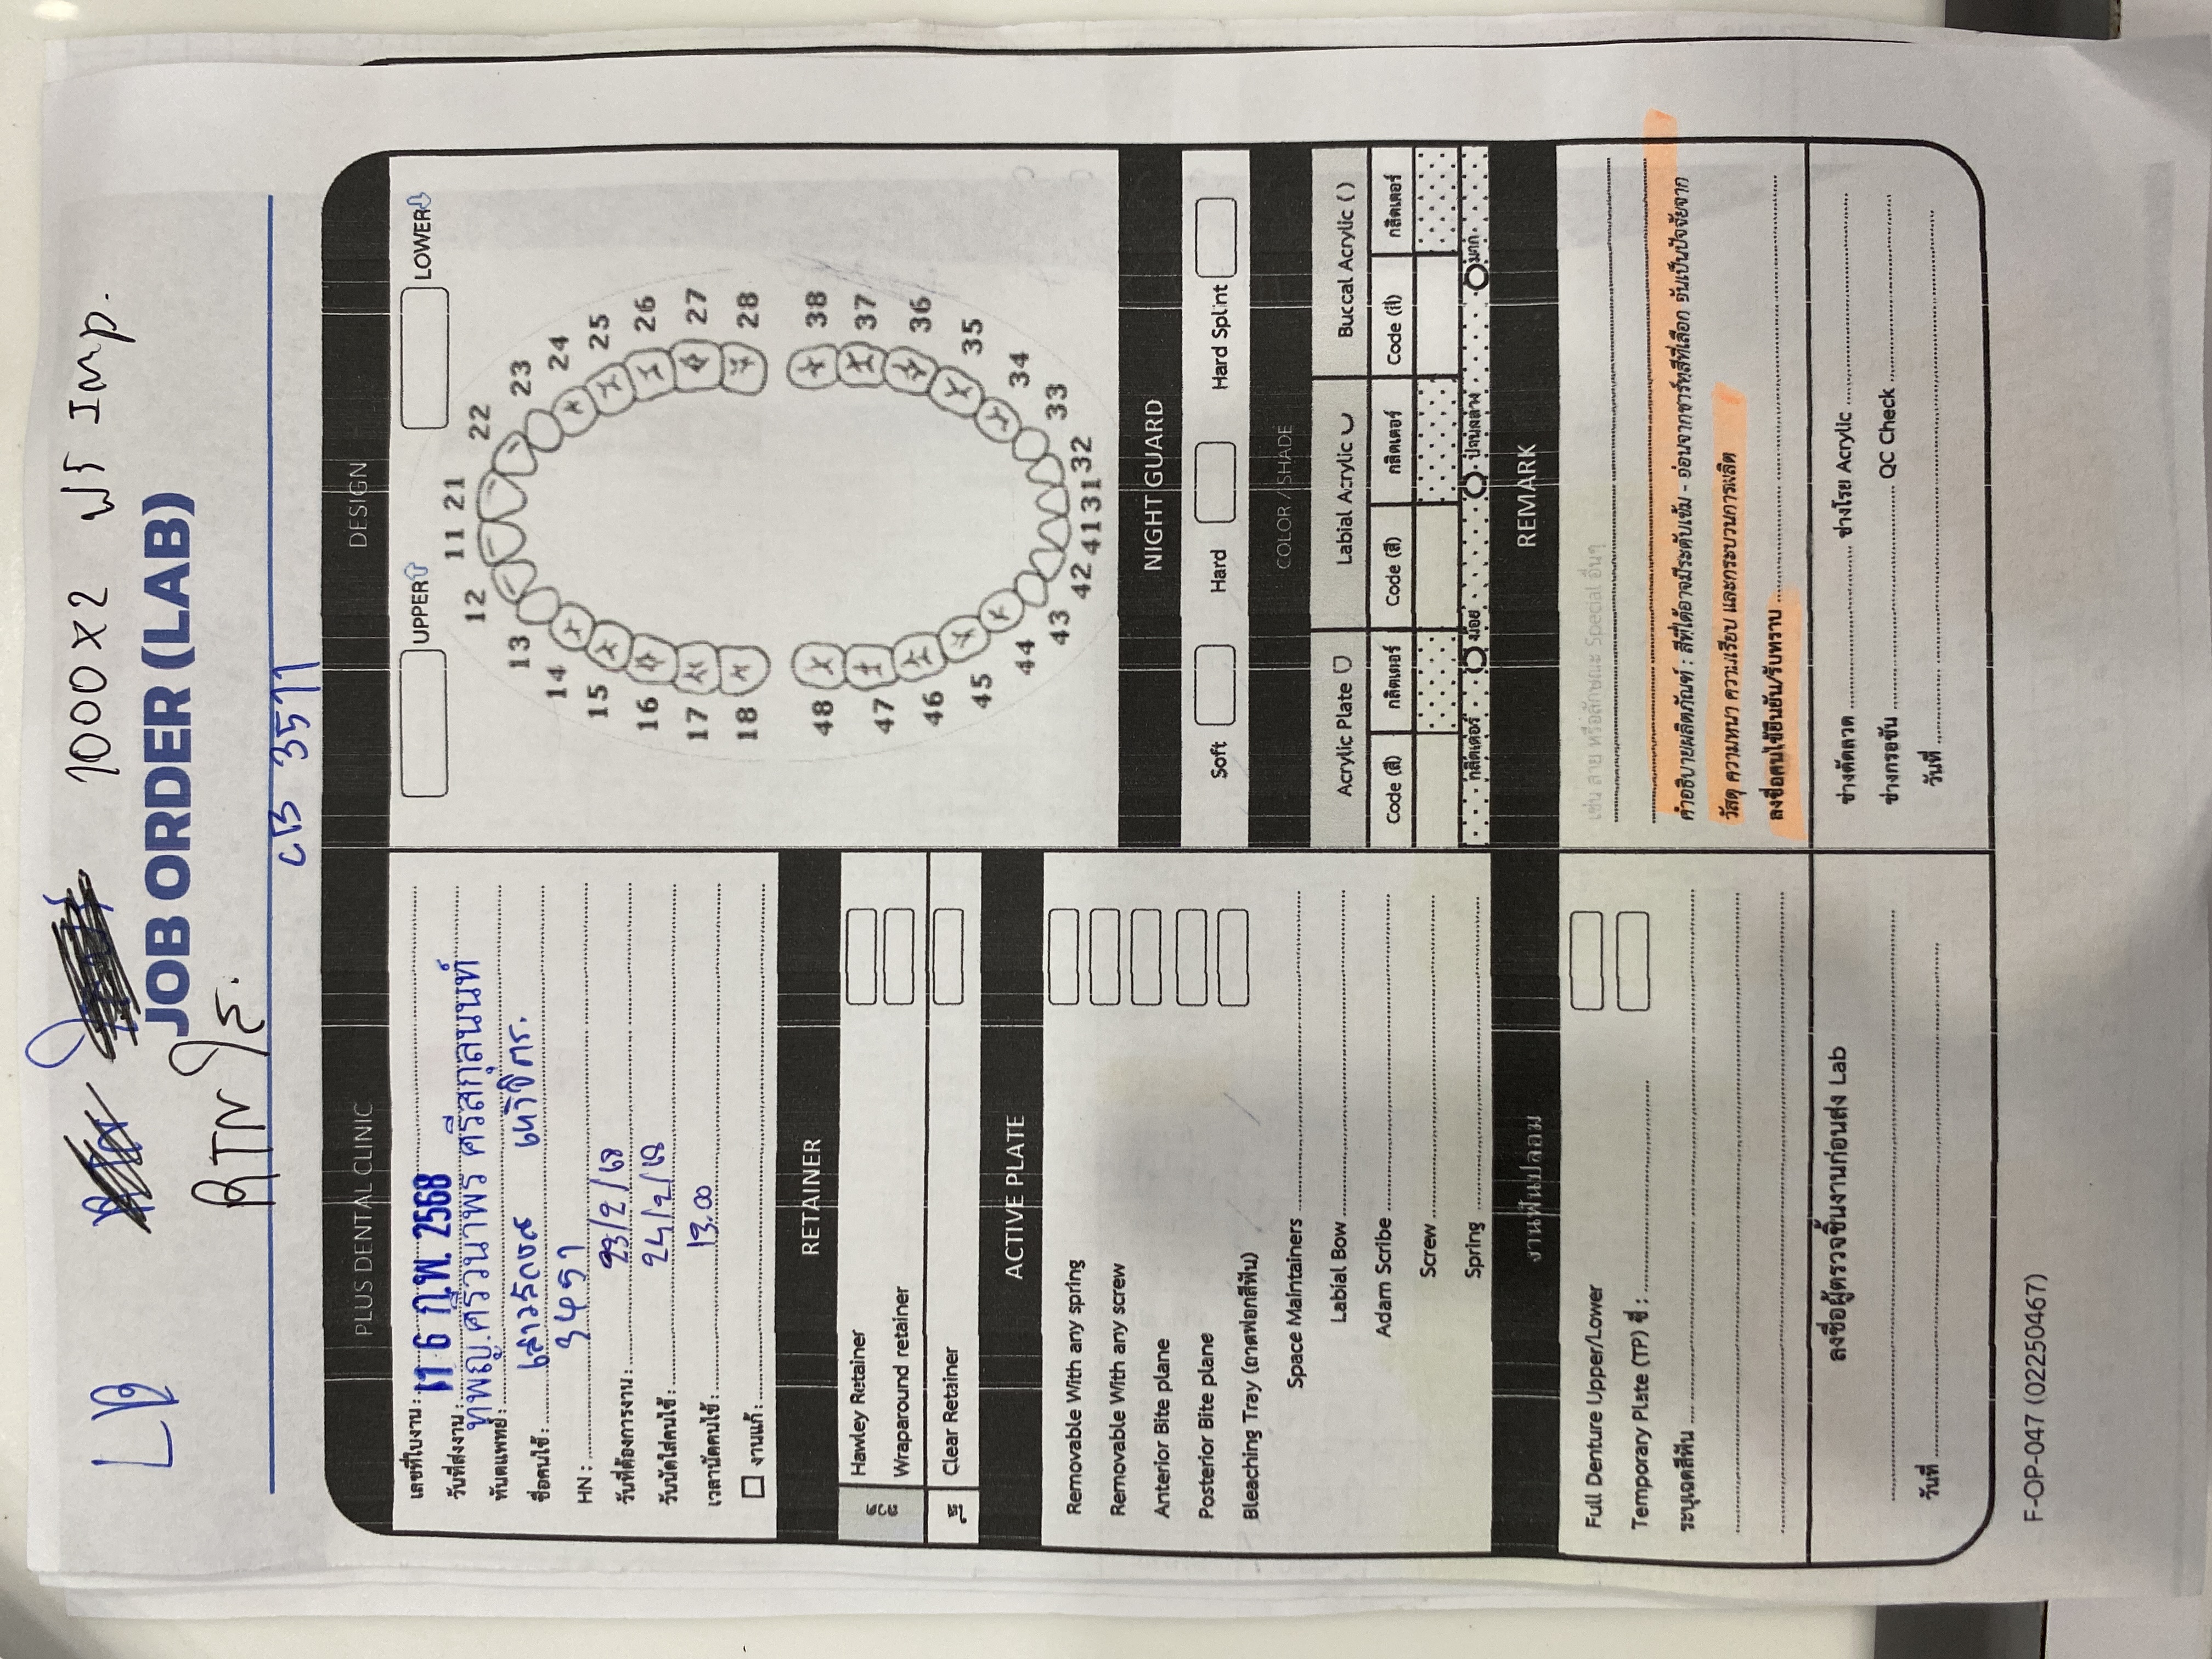 LB
1000x2 ฟรี Imp.
JOB ORDER (LAB)
RTN ใส.
CB 3511
PLUS DENTAL CLINIC
เลขที่ใบงาน :
วันที่ส่งงาน : 16 ก.พ. 2568
ทันตแพทย์ : ทพญ.ศรีวนาพร ศรีสกุลนนท์
ชื่อคนไข้ :
HN : 3451
วันที่ต้องการงาน : 23/2/68
วันนัดใส่คนไข้ : 24/2/68
เวลานัดคนไข้ : 13.00
งานแก้ :
RETAINER
Hawley Retainer
Wraparound retainer
ลวด
Clear Retainer
ใส
ACTIVE PLATE
Removable With any spring
Removable With any screw
Anterior Bite plane
Posterior Bite plane
Bleaching Tray (ถาดฟอกสีฟัน)
Space Maintainers
Labial Bow
Adam Scribe
Screw
Spring
งานฟันปลอม
Full Denture Upper/Lower
Temporary Plate (TP) ซี่ :
ระบุเฉดสีฟัน
ลงชื่อผู้ตรวจชิ้นงานก่อนส่ง Lab
วันที่
DESIGN
UPPER LOWER
11 21
12 22
13 23
14 24
15 25
16 26
17 27
18 28
48 38
47 37
46 36
45 35
44 34
43 33
42 41 31 32
NIGHT GUARD
Soft Hard Hard Splint
COLOR / SHADE
Acrylic Plate Labial Acrylic Buccal Acrylic ( )
Code (สี) กลิตเตอร์ Code (สี) กลิตเตอร์ Code (สี) กลิตเตอร์
กลิตเตอร์ น้อย ปานกลาง มาก
REMARK
เช่น ลาย หรือลักษณะ Special อื่นๆ
คำอธิบายผลิตภัณฑ์ : สีที่ได้อาจมีระดับเข้ม - อ่อนจากชาร์ทสีที่เลือก อันเป็นปัจจัยจาก
วัสดุ ความหนา ความเรียบ และกระบวนการผลิต
ลงชื่อคนไข้ยืนยัน/รับทราบ
ช่างดัดลวด ช่างโรย Acrylic
ช่างกรอขัน QC Check
วันที่
F-OP-047 (02250467)